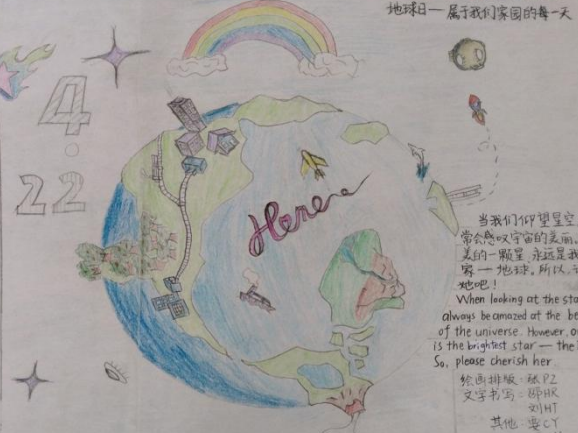 地球日——属于我们家园的每一天
4.22
Here
当我们仰望星空
常会感叹宇宙的美丽.
美的一颗星 永远是我
家——地球. 所以,
她吧!
When looking at the sta
always be amazed at the be
of the universe. However, o
is the brightest star — the
So, please cherish her
绘画排版: PZ
文字书写: HR
刘HT
其他: CY